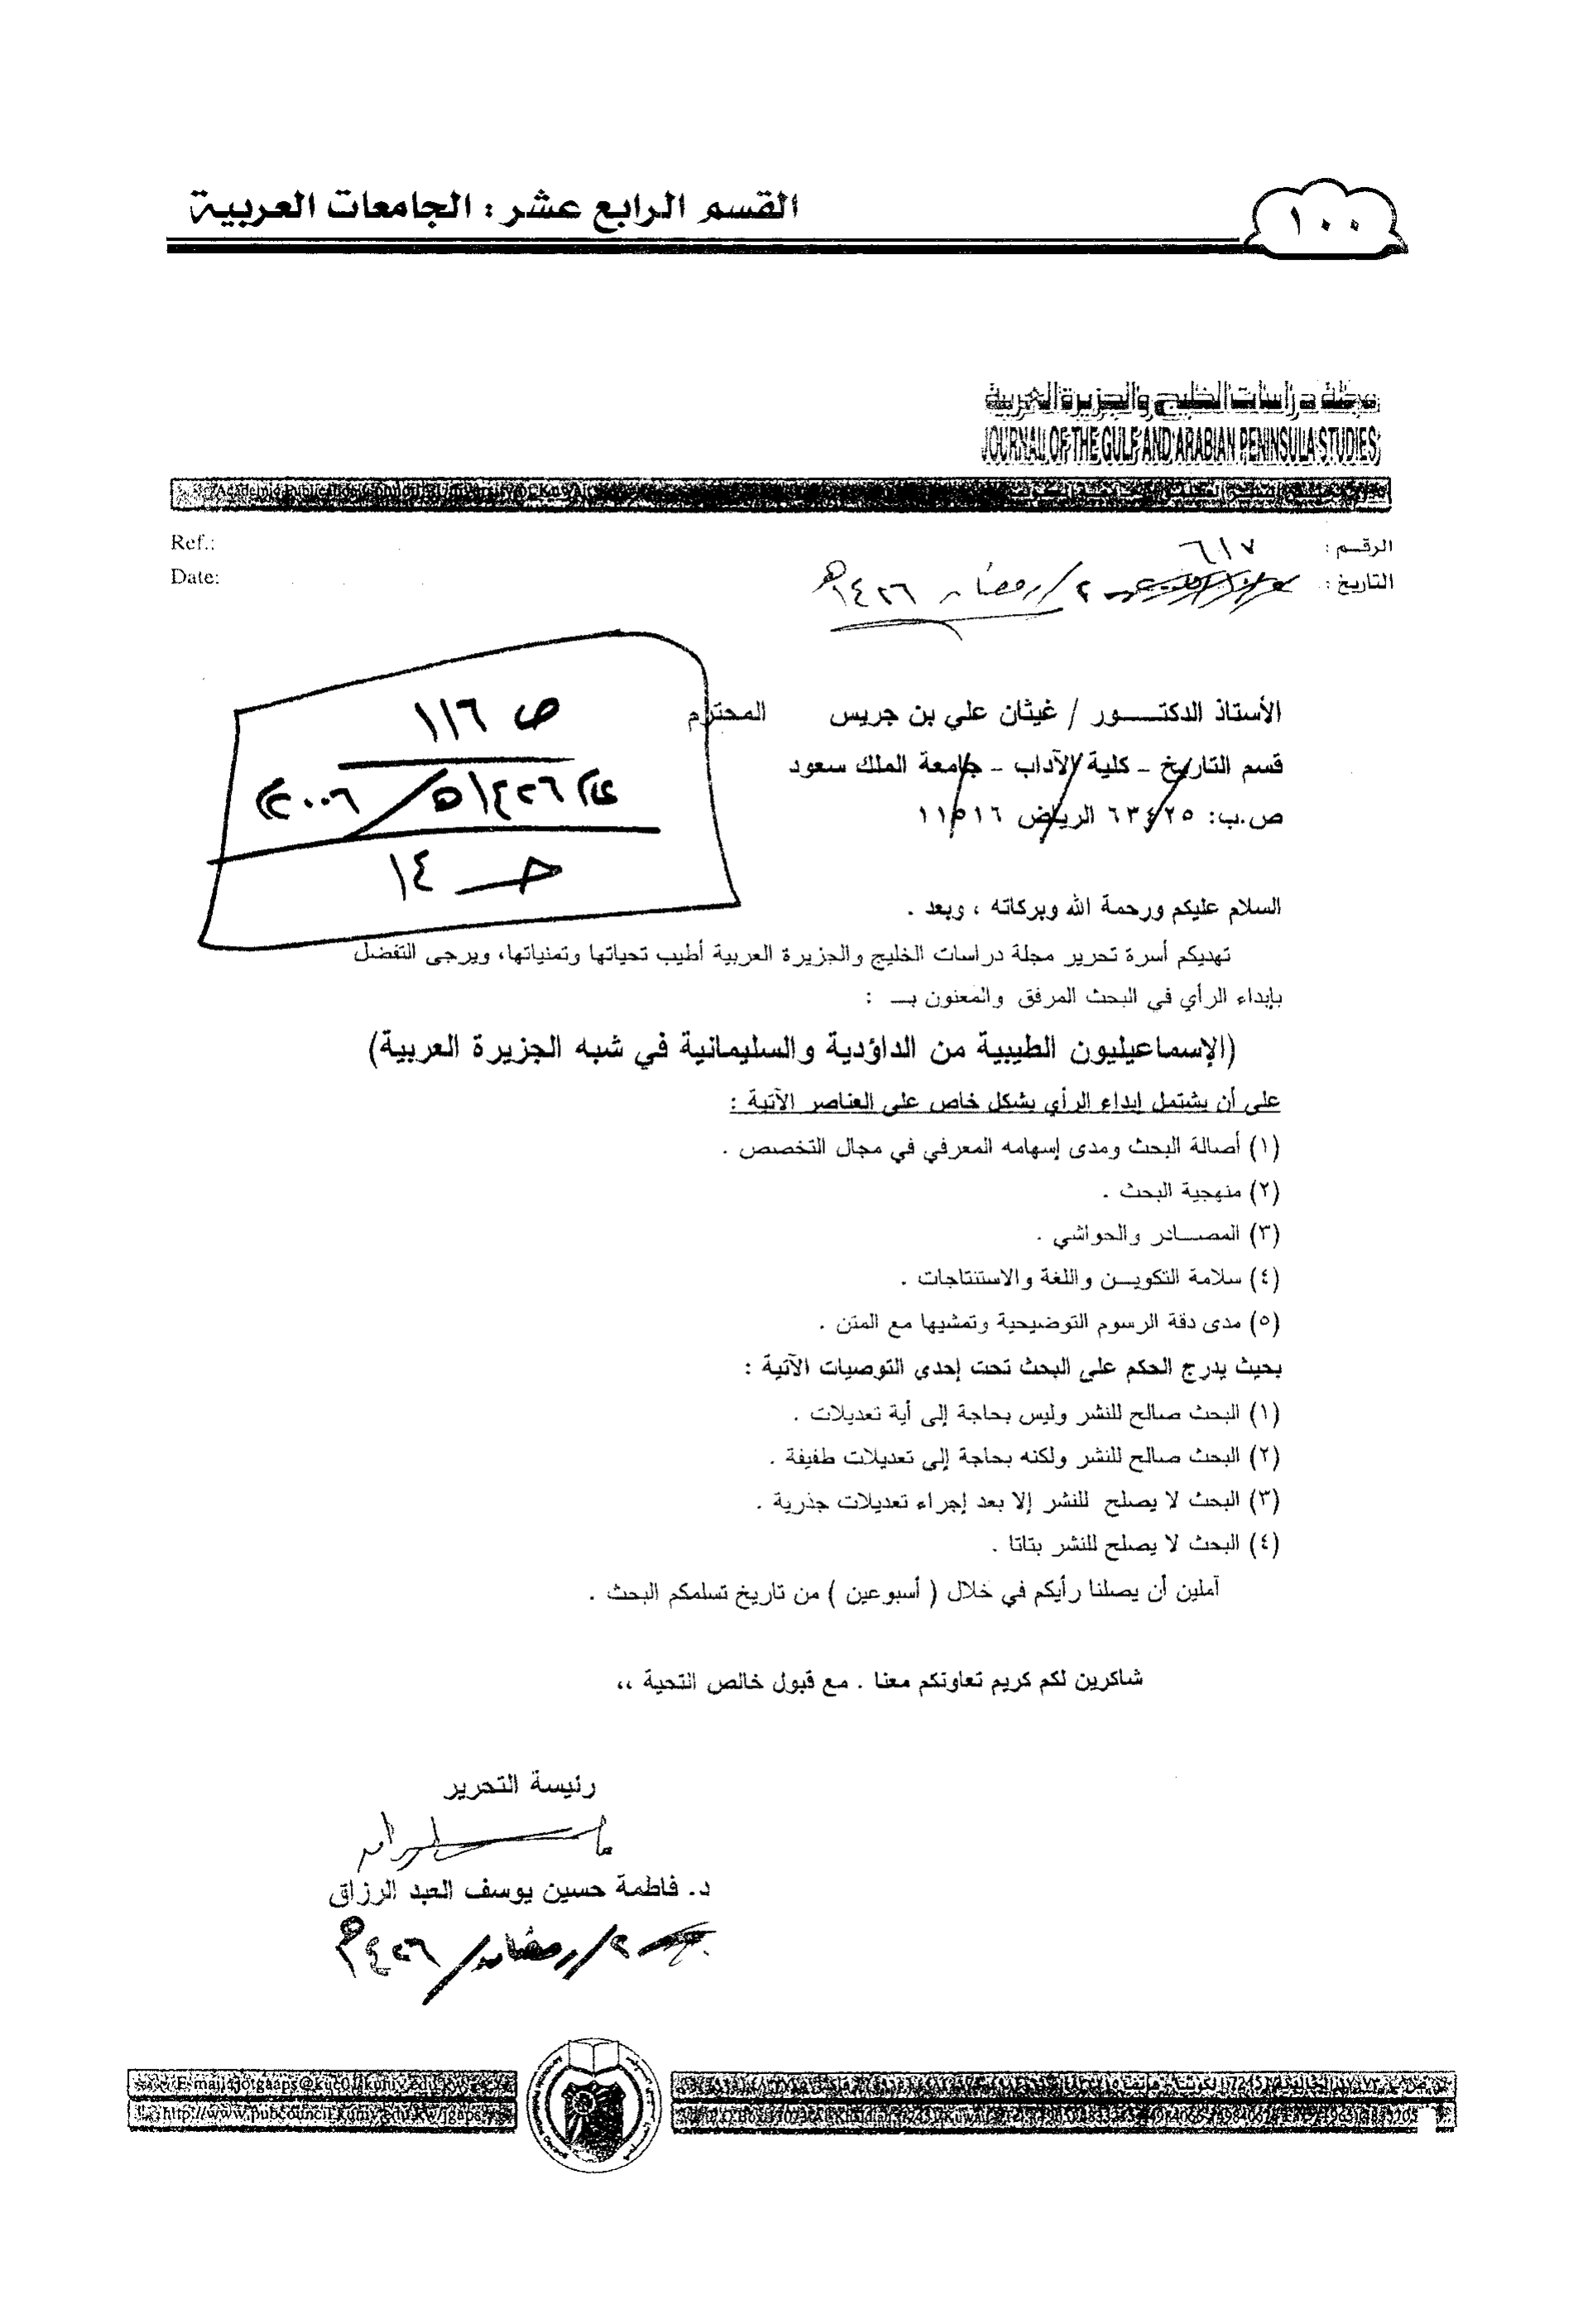 القسم الرابع عشر : الجامعات العربية
١٠٠
مجلة دراسات الخليج والجزيرة العربية
JOURNAL OF THE GULF AND ARABIAN PENINSULA STUDIES
Ref.:
الرقـم : ٦١٧
Date:
التاريخ : ٢/رمضان ١٤٢٦هـ
ص ١١٦
١٤٢٦هـ/٢٠٠٦م
جـ ١٤
الأستاذ الدكتـــور / غيثان علي بن جريس المحترم
قسم التاريخ - كلية الآداب - جامعة الملك سعود
ص.ب: ٦٣٤٢٥ الرياض ١١٥١٦
السلام عليكم ورحمة الله وبركاته ، وبعد .
تهديكم أسرة تحرير مجلة دراسات الخليج والجزيرة العربية أطيب تحياتها وتمنياتها، ويرجى التفضل
بإبداء الرأي في البحث المرفق والمعنون بـــ :
(الإسماعيليون الطيبية من الداؤدية والسليمانية في شبه الجزيرة العربية)
على أن يشتمل إبداء الرأي بشكل خاص على العناصر الآتية :
(١) أصالة البحث ومدى إسهامه المعرفي في مجال التخصص .
(٢) منهجية البحث .
(٣) المصــادر والحواشي .
(٤) سلامة التكويــن واللغة والاستنتاجات .
(٥) مدى دقة الرسوم التوضيحية وتمشيها مع المتن .
بحيث يدرج الحكم على البحث تحت إحدى التوصيات الآتية :
(١) البحث صالح للنشر وليس بحاجة إلى أية تعديلات .
(٢) البحث صالح للنشر ولكنه بحاجة إلى تعديلات طفيفة .
(٣) البحث لا يصلح للنشر إلا بعد إجراء تعديلات جذرية .
(٤) البحث لا يصلح للنشر بتاتا .
آملين أن يصلنا رأيكم في خلال ( أسبوعين ) من تاريخ تسلمكم البحث .
شاكرين لكم كريم تعاونكم معنا . مع قبول خالص التحية ،،
رئيسة التحرير
د. فاطمة حسين يوسف العبد الرزاق
٢/رمضان/١٤٢٦هـ
http://www.pubcouncil.kuniv.edu.kw/jgaps